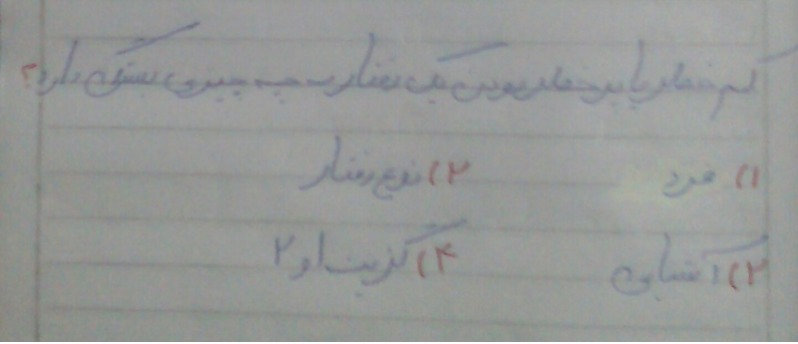 کم خطر یا پر خطر بودن یک رفتار به چه چیزی بستگی دارد؟
۱) فرد ۲) نوع رفتار
۳) آشنایی ۴) گزینه ۱ و ۲